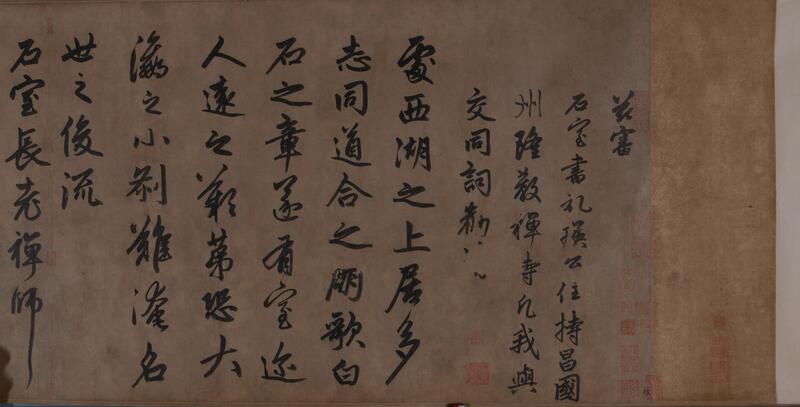 茲審
石室書記瑛公住持昌國
州隆教禪寺凡我與
交同詞勸
處西湖之上居多
志同道合之朋歌白
石之章遂有室邇
人遠之歎第恐大
瀛之小刹難淹名
世之俊流
石室長老禪師